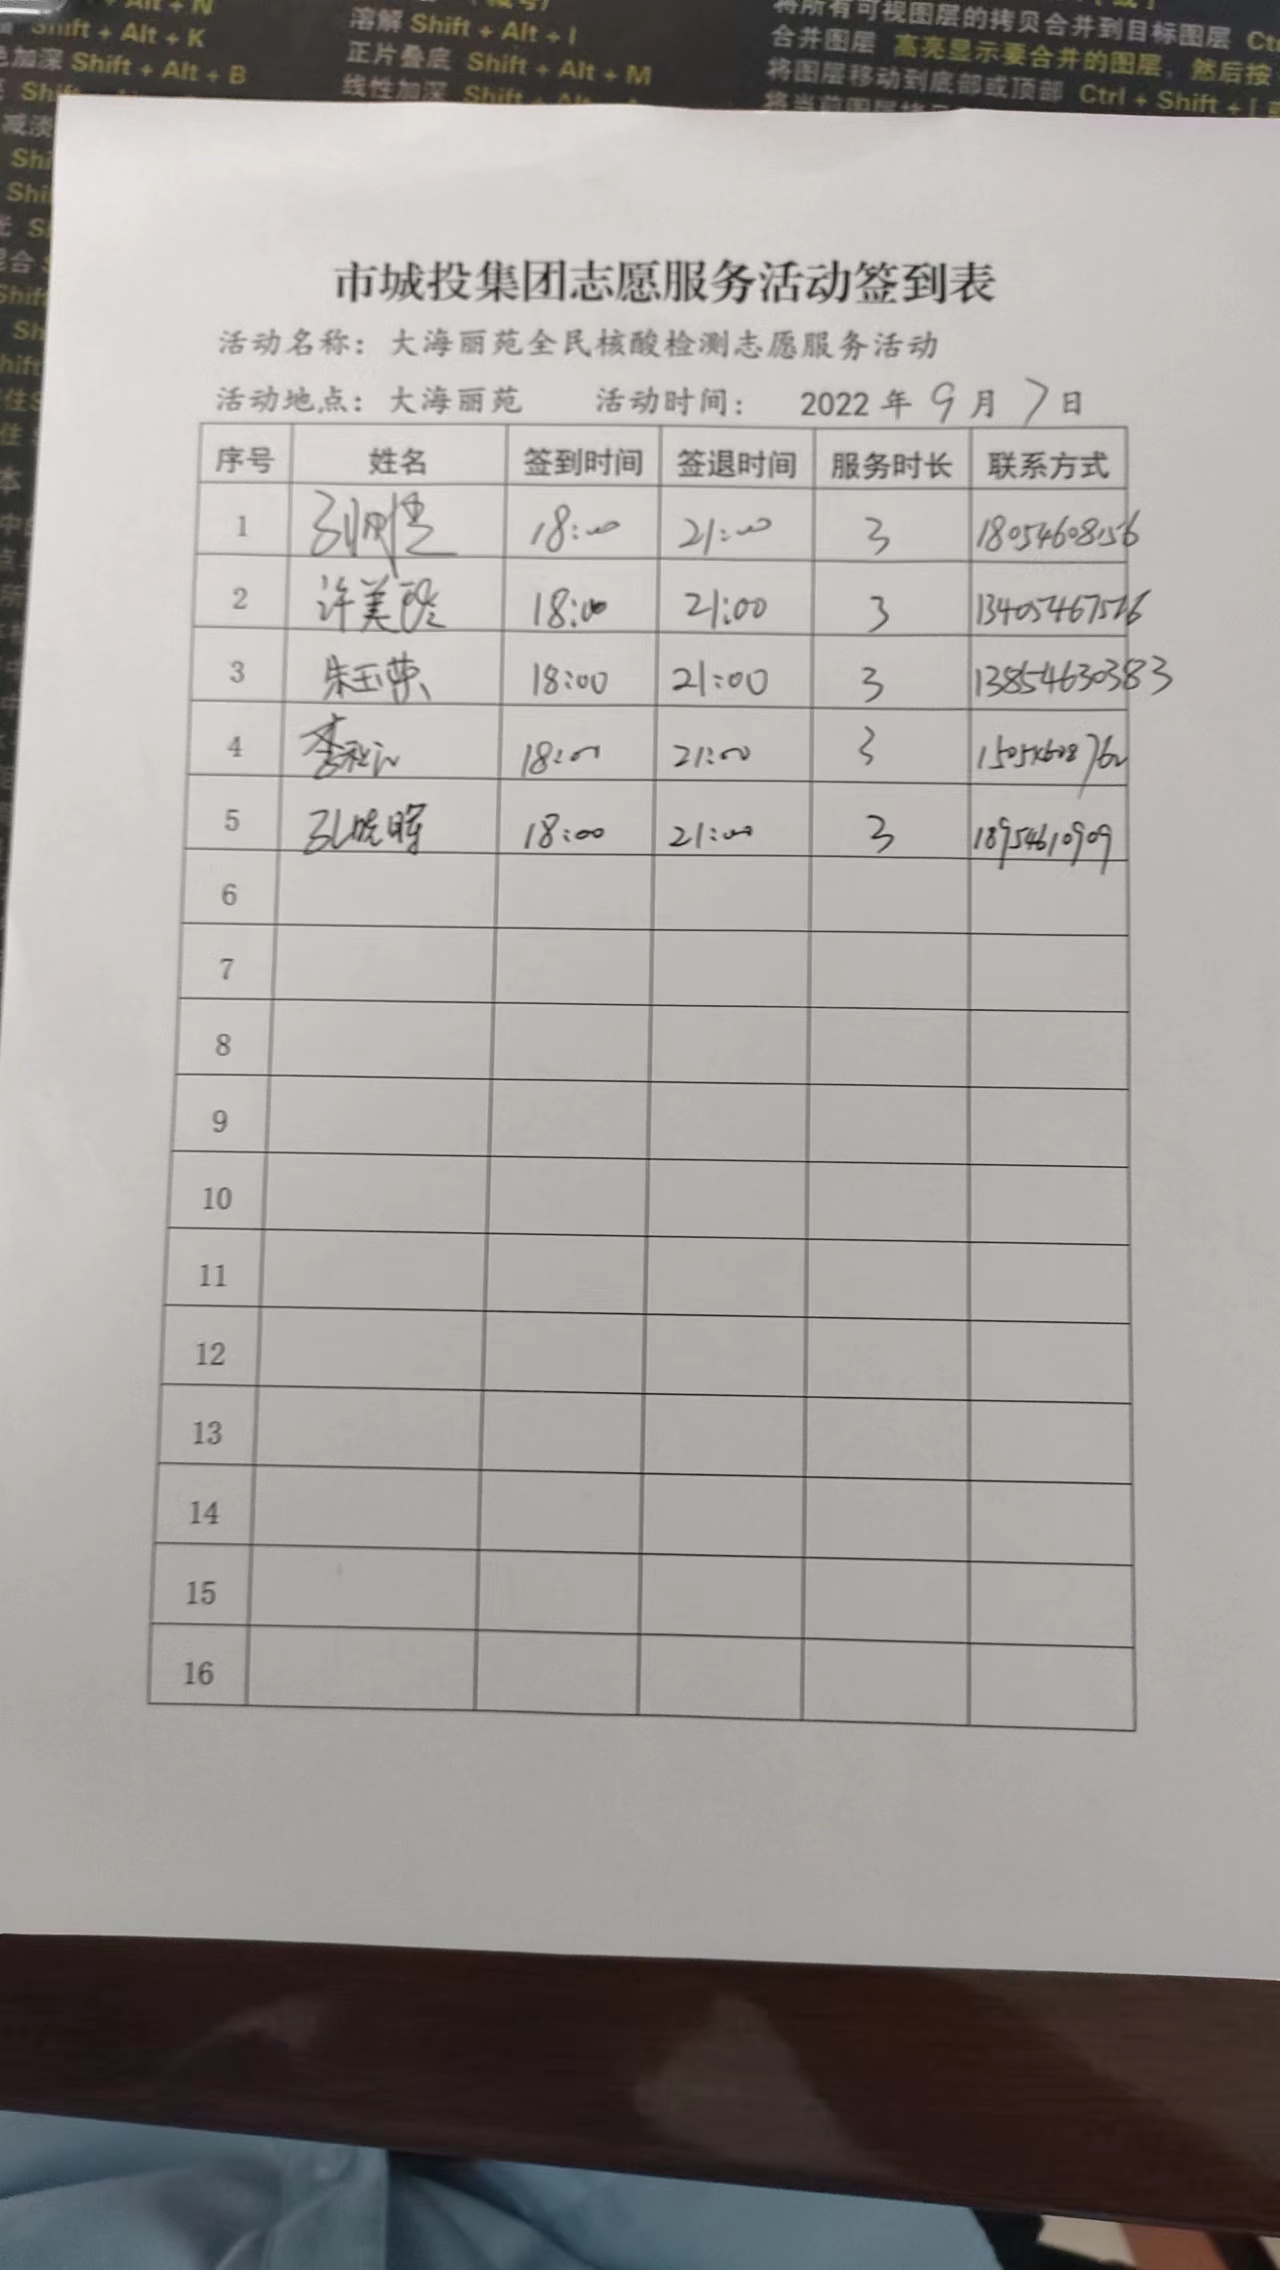 溶解 Shift + Alt + I
Shift + Alt + K
正片叠底 Shift + Alt + M
合并图层 高亮显示要合并的图层,然后按
加深 Shift + Alt + B
线性加深 Shift + Alt +
将图层移动到底部或顶部 Ctrl + Shift + [
市城投集团志愿服务活动签到表
活动名称：大海丽苑全民核酸检测志愿服务活动
活动地点：大海丽苑 活动时间： 2022 年 9 月 7 日
序号 姓名 签到时间 签退时间 服务时长 联系方式
1 18:00 21:00 3 18054608156
2 许美玲 18:00 21:00 3
3 朱玉荣 18:00 21:00 3 13854630383
4 18:00 21:00 3
5 孔晓晖 18:00 21:00 3 18954610909
6
7
8
9
10
11
12
13
14
15
16